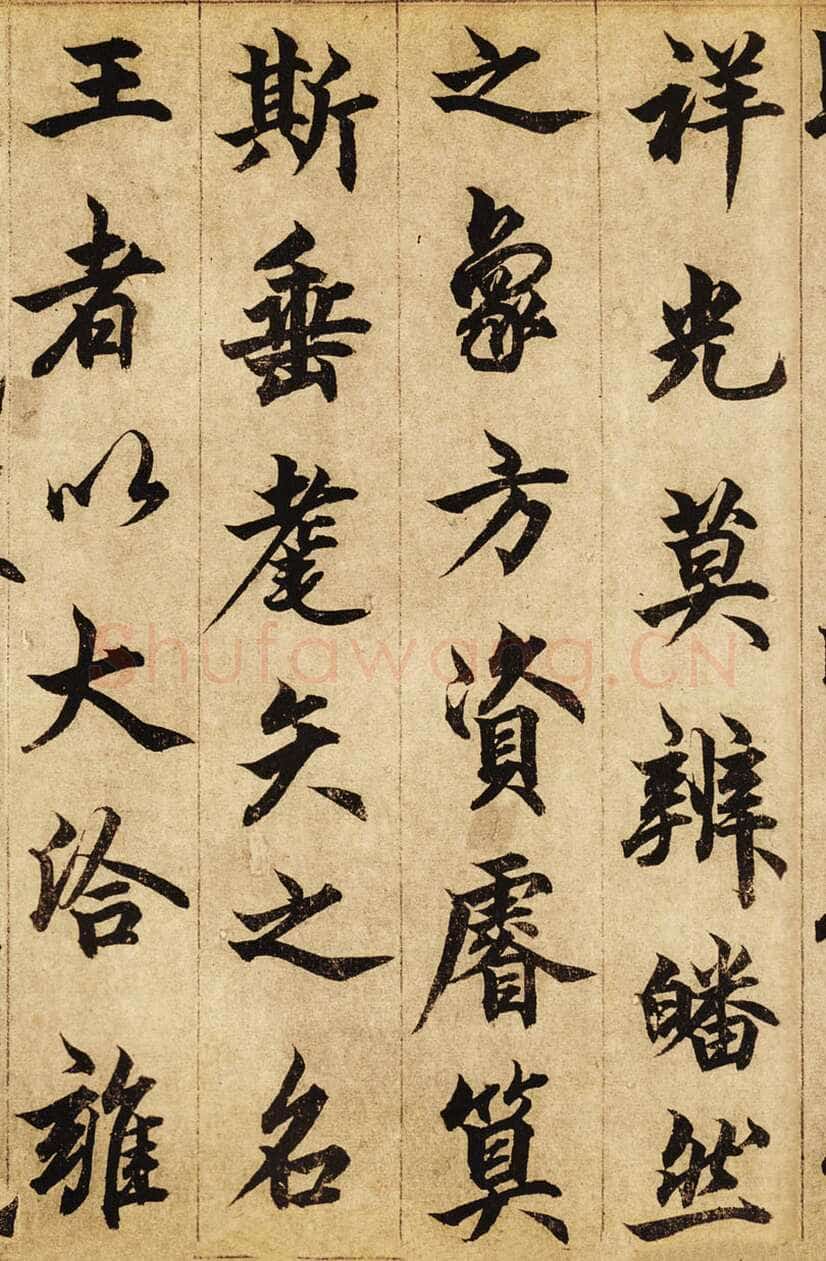 祥光莫辨皤然
之象方資睿算
斯垂耄矣之名
王者以大洽雍
Shufawang.CN